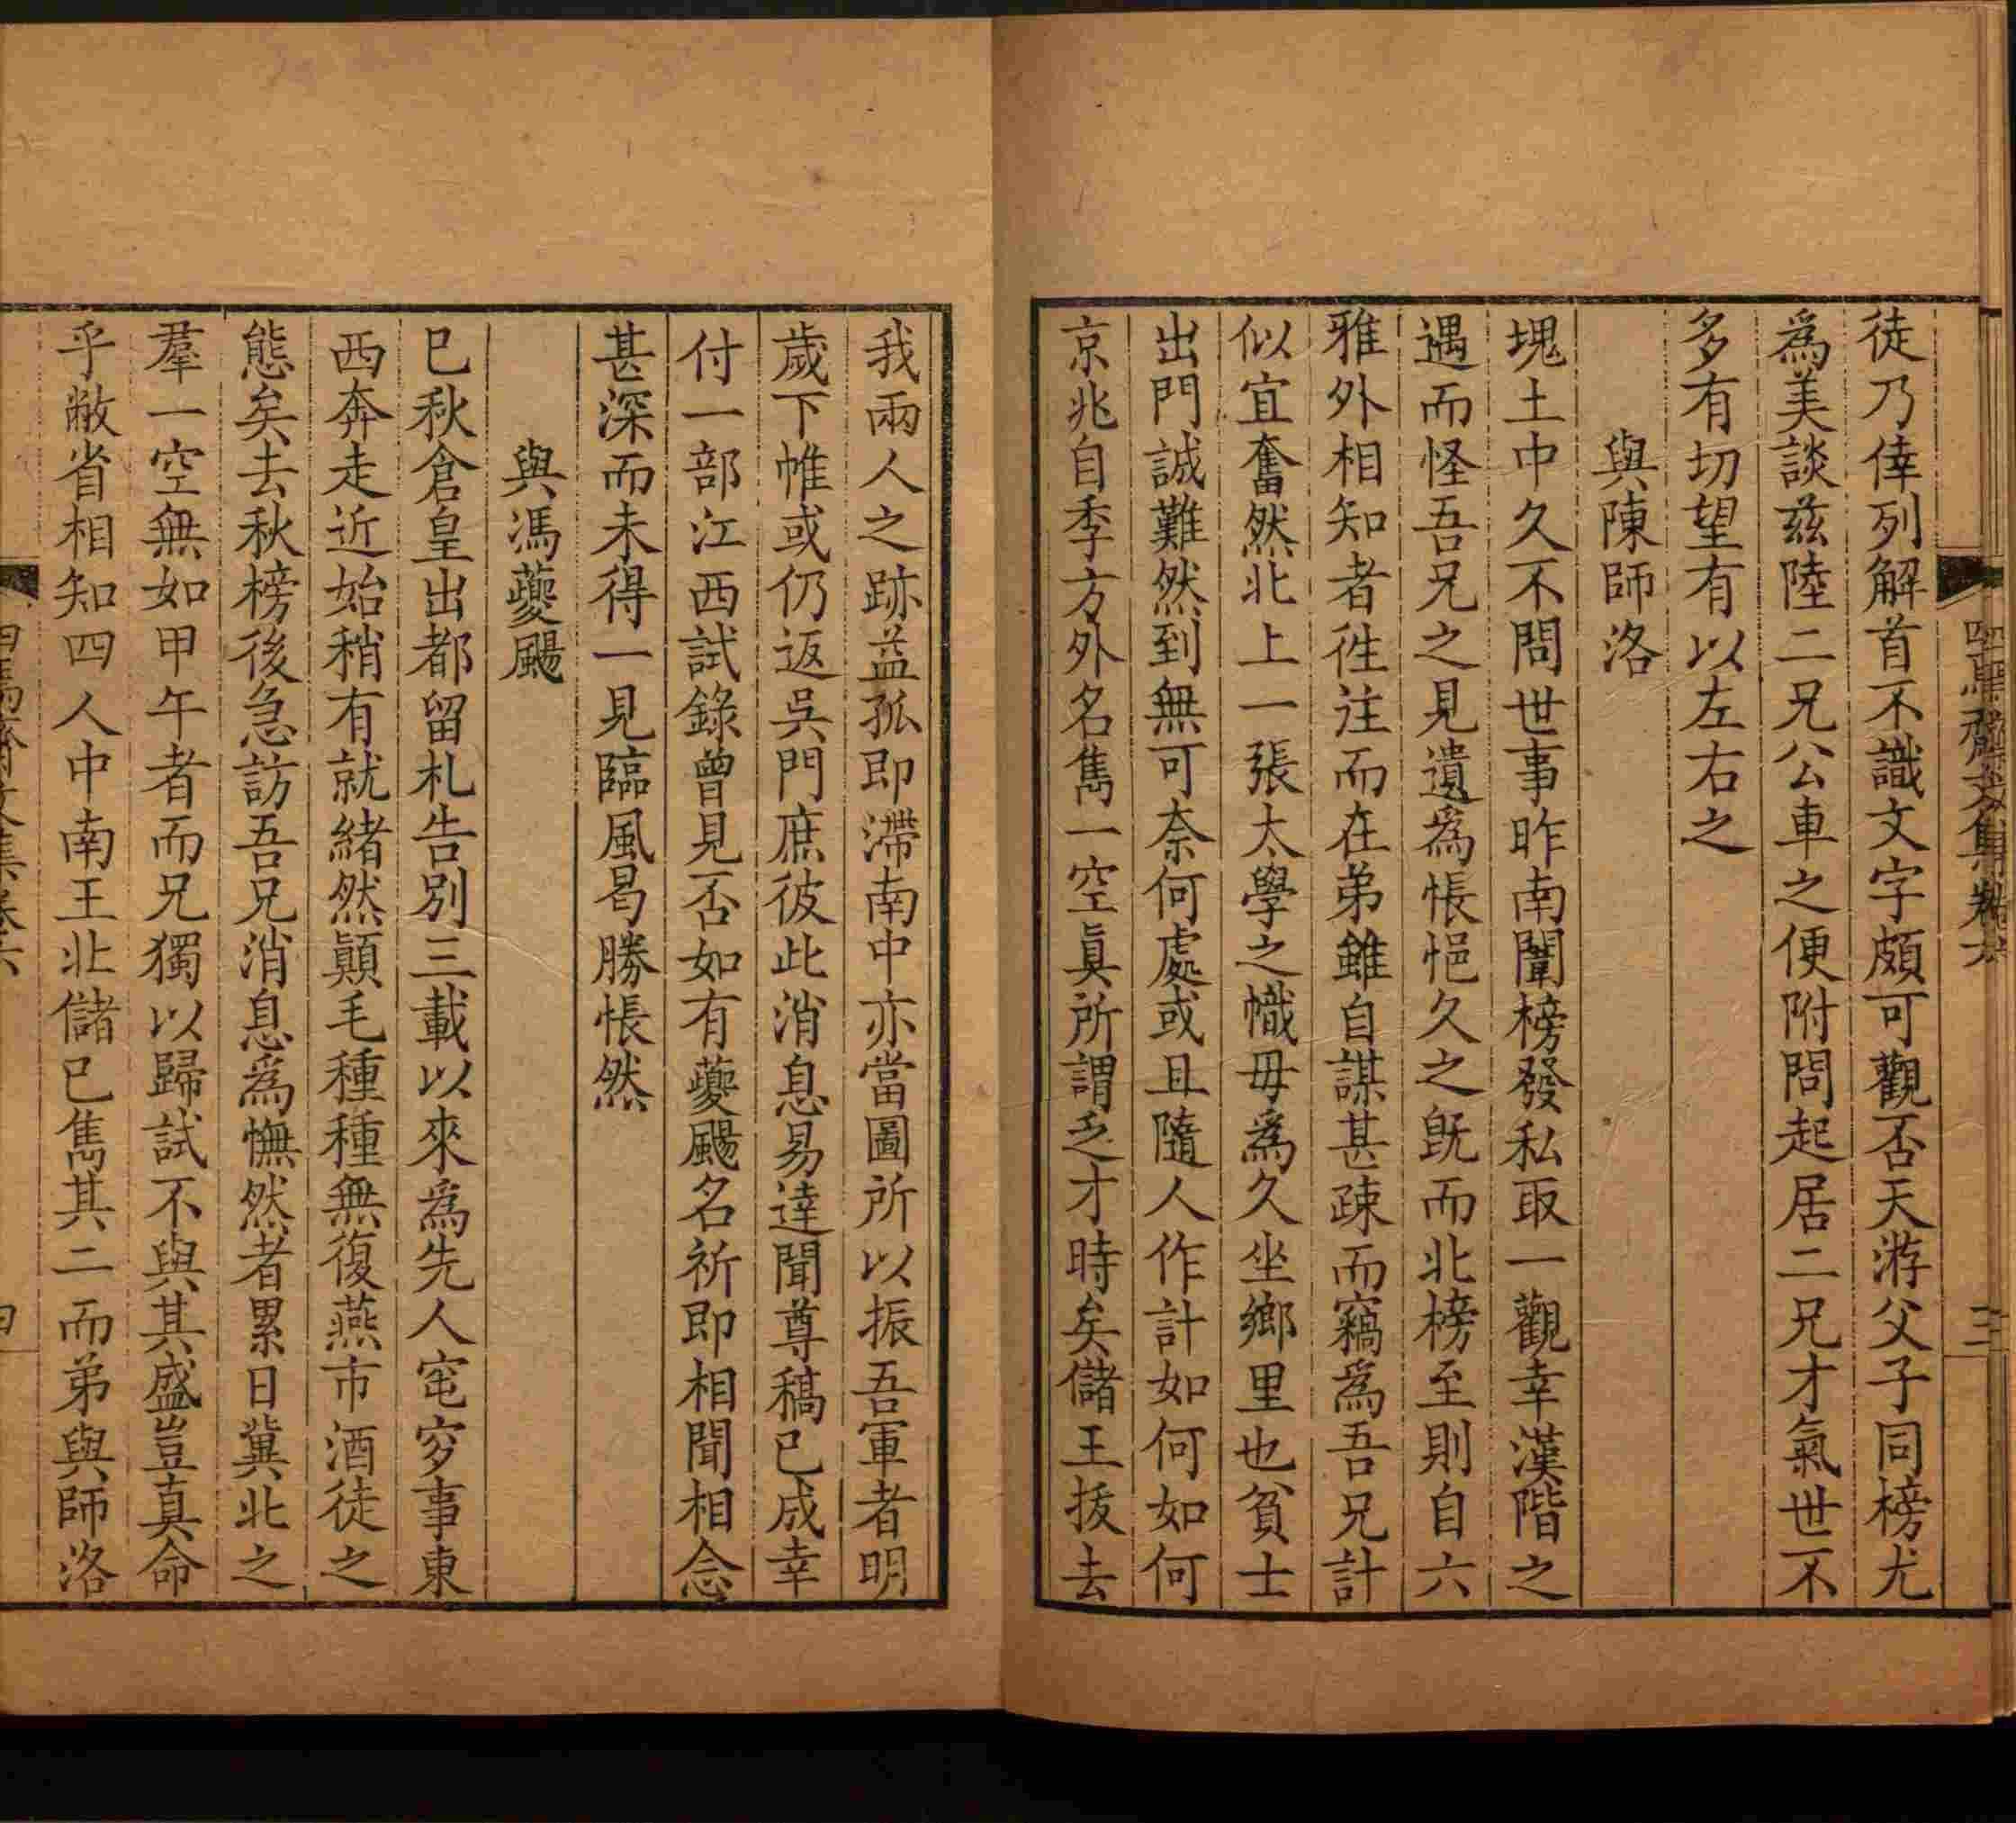 徒乃倖列解首不識文字頗可觀否天游父子同榜尤
爲美談茲陸二兄公車之便附問起居二兄才氣世不
多有切望有以左右之
與陳師洛
塊土中久不問世事昨南闈榜發私取一觀幸漢階之
遇而怪吾兄之見遺爲悵悒久之旣而北榜至則自六
雅外相知者徃注而在弟雖自謀甚疎而竊爲吾兄計
似宜奮然北上一張太學之幟毋爲久坐鄉里也貧士
出門誠難然到無可奈何處或且隨人作計如何如何
京兆自季方外名雋一空眞所謂乏才時矣儲王拔去
我兩人之跡益孤即滯南中亦當圖所以振吾軍者明
歲下帷或仍返吳門庶彼此消息易達聞尊稿已成幸
付一部江西試錄曾見否如有夔颺名祈即相聞相念
甚深而未得一見臨風曷勝悵然
與馮夔颺
巳秋倉皇出都留札告別三載以來爲先人窀穸事東
西奔走近始稍有就緒然顛毛種種無復燕市酒徒之
態矣去秋榜後急訪吾兄消息爲憮然者累日冀北之
羣一空無如甲午者而兄獨以歸試不與其盛豈真命
乎敝省相知四人中南王北儲已雋其二而弟與師洛